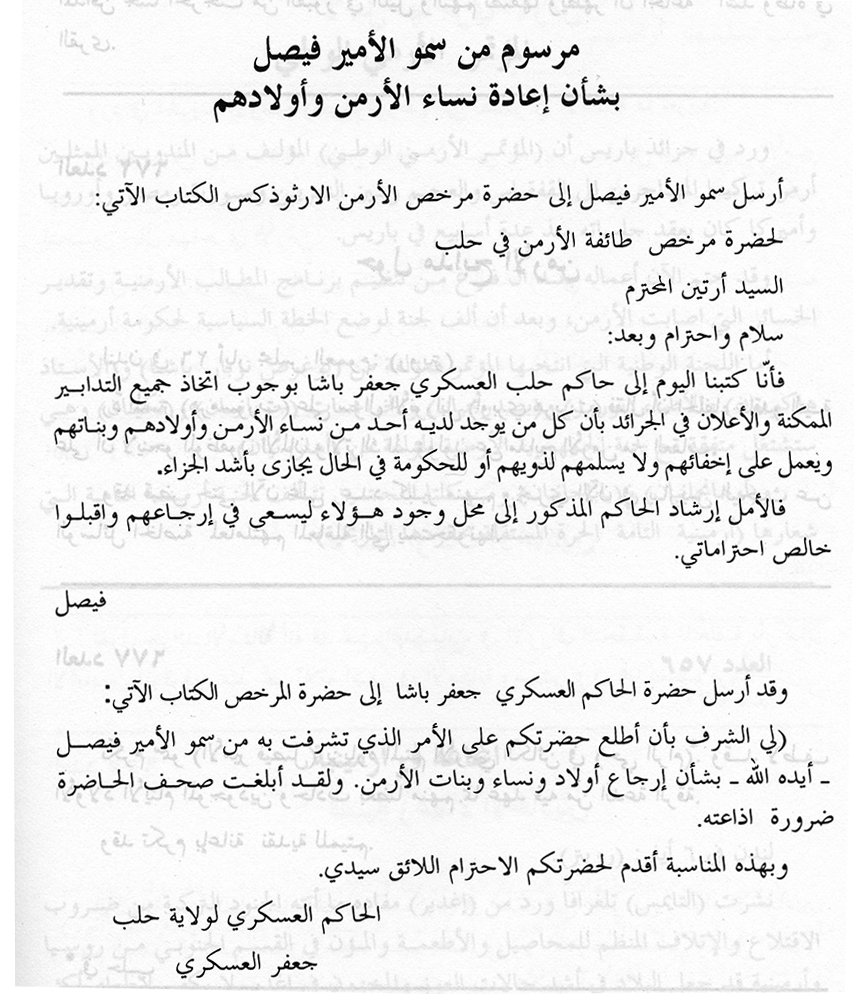 مرسوم من سمو الأمير فيصل
بشأن إعادة نساء الأرمن وأولادهم
أرسل سمو الأمير فيصل إلى حضرة مرخص الأرمن الارثوذكس الكتاب الآتي:
لحضرة مرخص طائفة الأرمن في حلب
السيد أرتين المحترم
سلام واحترام وبعد:
فأنّا كتبنا اليوم إلى حاكم حلب العسكري جعفر باشا بوجوب اتخاذ جميع التدابير
الممكنة والأعلان في الجرائد بأن كل من يوجد لديه أحد من نساء الأرمن وأولادهم وبناتهم
ويعمل على إخفائهم ولا يسلمهم لذويهم أو للحكومة في الحال يجازى بأشد الجزاء.
فالأمل إرشاد الحاكم المذكور إلى محل وجود هؤلاء ليسعى في إرجاعهم واقبلوا
خالص احتراماتي.
فيصل
وقد أرسل حضرة الحاكم العسكري جعفر باشا إلى حضرة المرخص الكتاب الآتي:
(لي الشرف بأن أطلع حضرتكم على الأمر الذي تشرفت به من سمو الأمير فيصل
ـ أيده الله ـ بشأن إرجاع أولاد ونساء وبنات الأرمن. ولقد أبلغت صحف الحاضرة
ضرورة اذاعته.
وبهذه المناسبة أقدم لحضرتكم الاحترام اللائق سيدي.
الحاكم العسكري لولاية حلب
جعفر العسكري